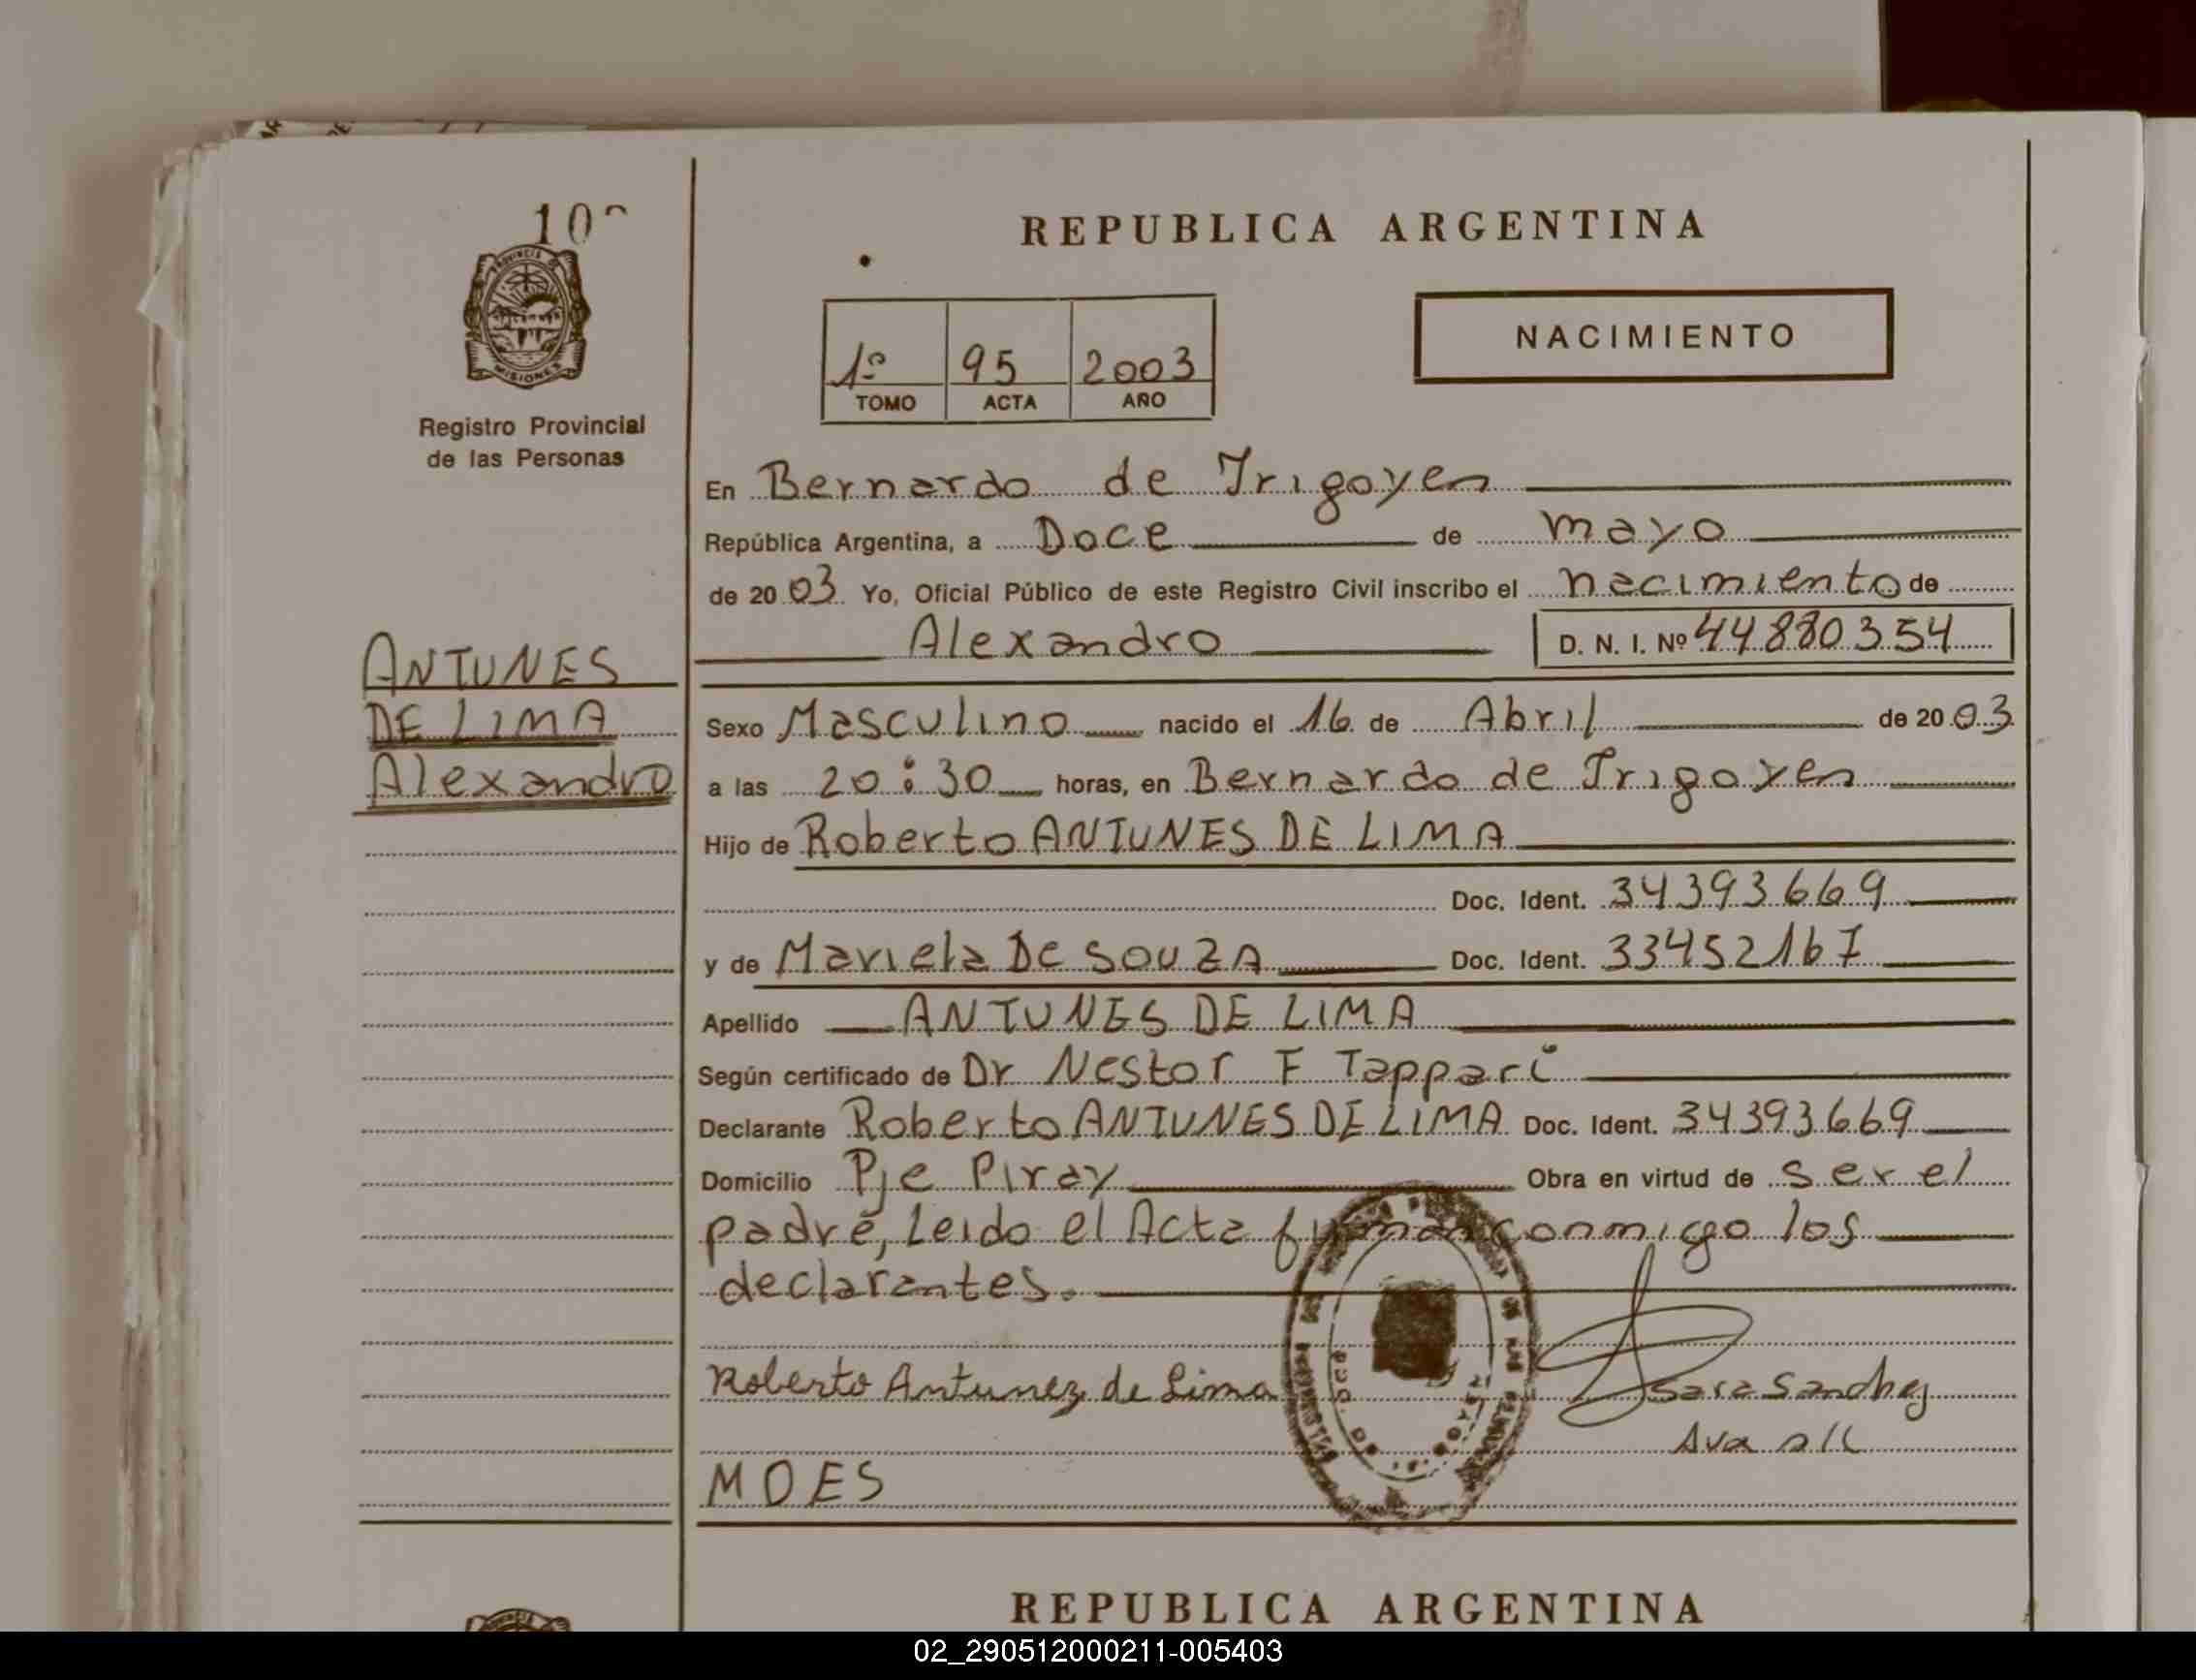 10
PROVINCIA DE
MISIONES
Registro Provincial
de las Personas
ANTUNES
DE LIMA
Alexandro
REPUBLICA ARGENTINA
1º 95 2003
TOMO ACTA AÑO
NACIMIENTO
En Bernardo de Irigoyen
República Argentina, a Doce de mayo
de 2003 Yo, Oficial Público de este Registro Civil inscribo el nacimiento de
Alexandro D. N. I. Nº 44880354
Sexo Masculino nacido el 16 de Abril de 2003
a las 20:30 horas, en Bernardo de Irigoyen
Hijo de Roberto ANTUNES DE LIMA
Doc. Ident. 34393669
y de Mariela De SOUZA Doc. Ident. 33452167
Apellido ANTUNES DE LIMA
Según certificado de Dr Nestor F Tappari
Declarante Roberto ANTUNES DE LIMA Doc. Ident. 34393669
Domicilio Pje Piray Obra en virtud de ser el
padre, Leido el Acta firman conmigo los
declarantes.
Roberto Antunez de Lima
Sara Sanchez
MDES
REPUBLICA ARGENTINA
02_290512000211-005403